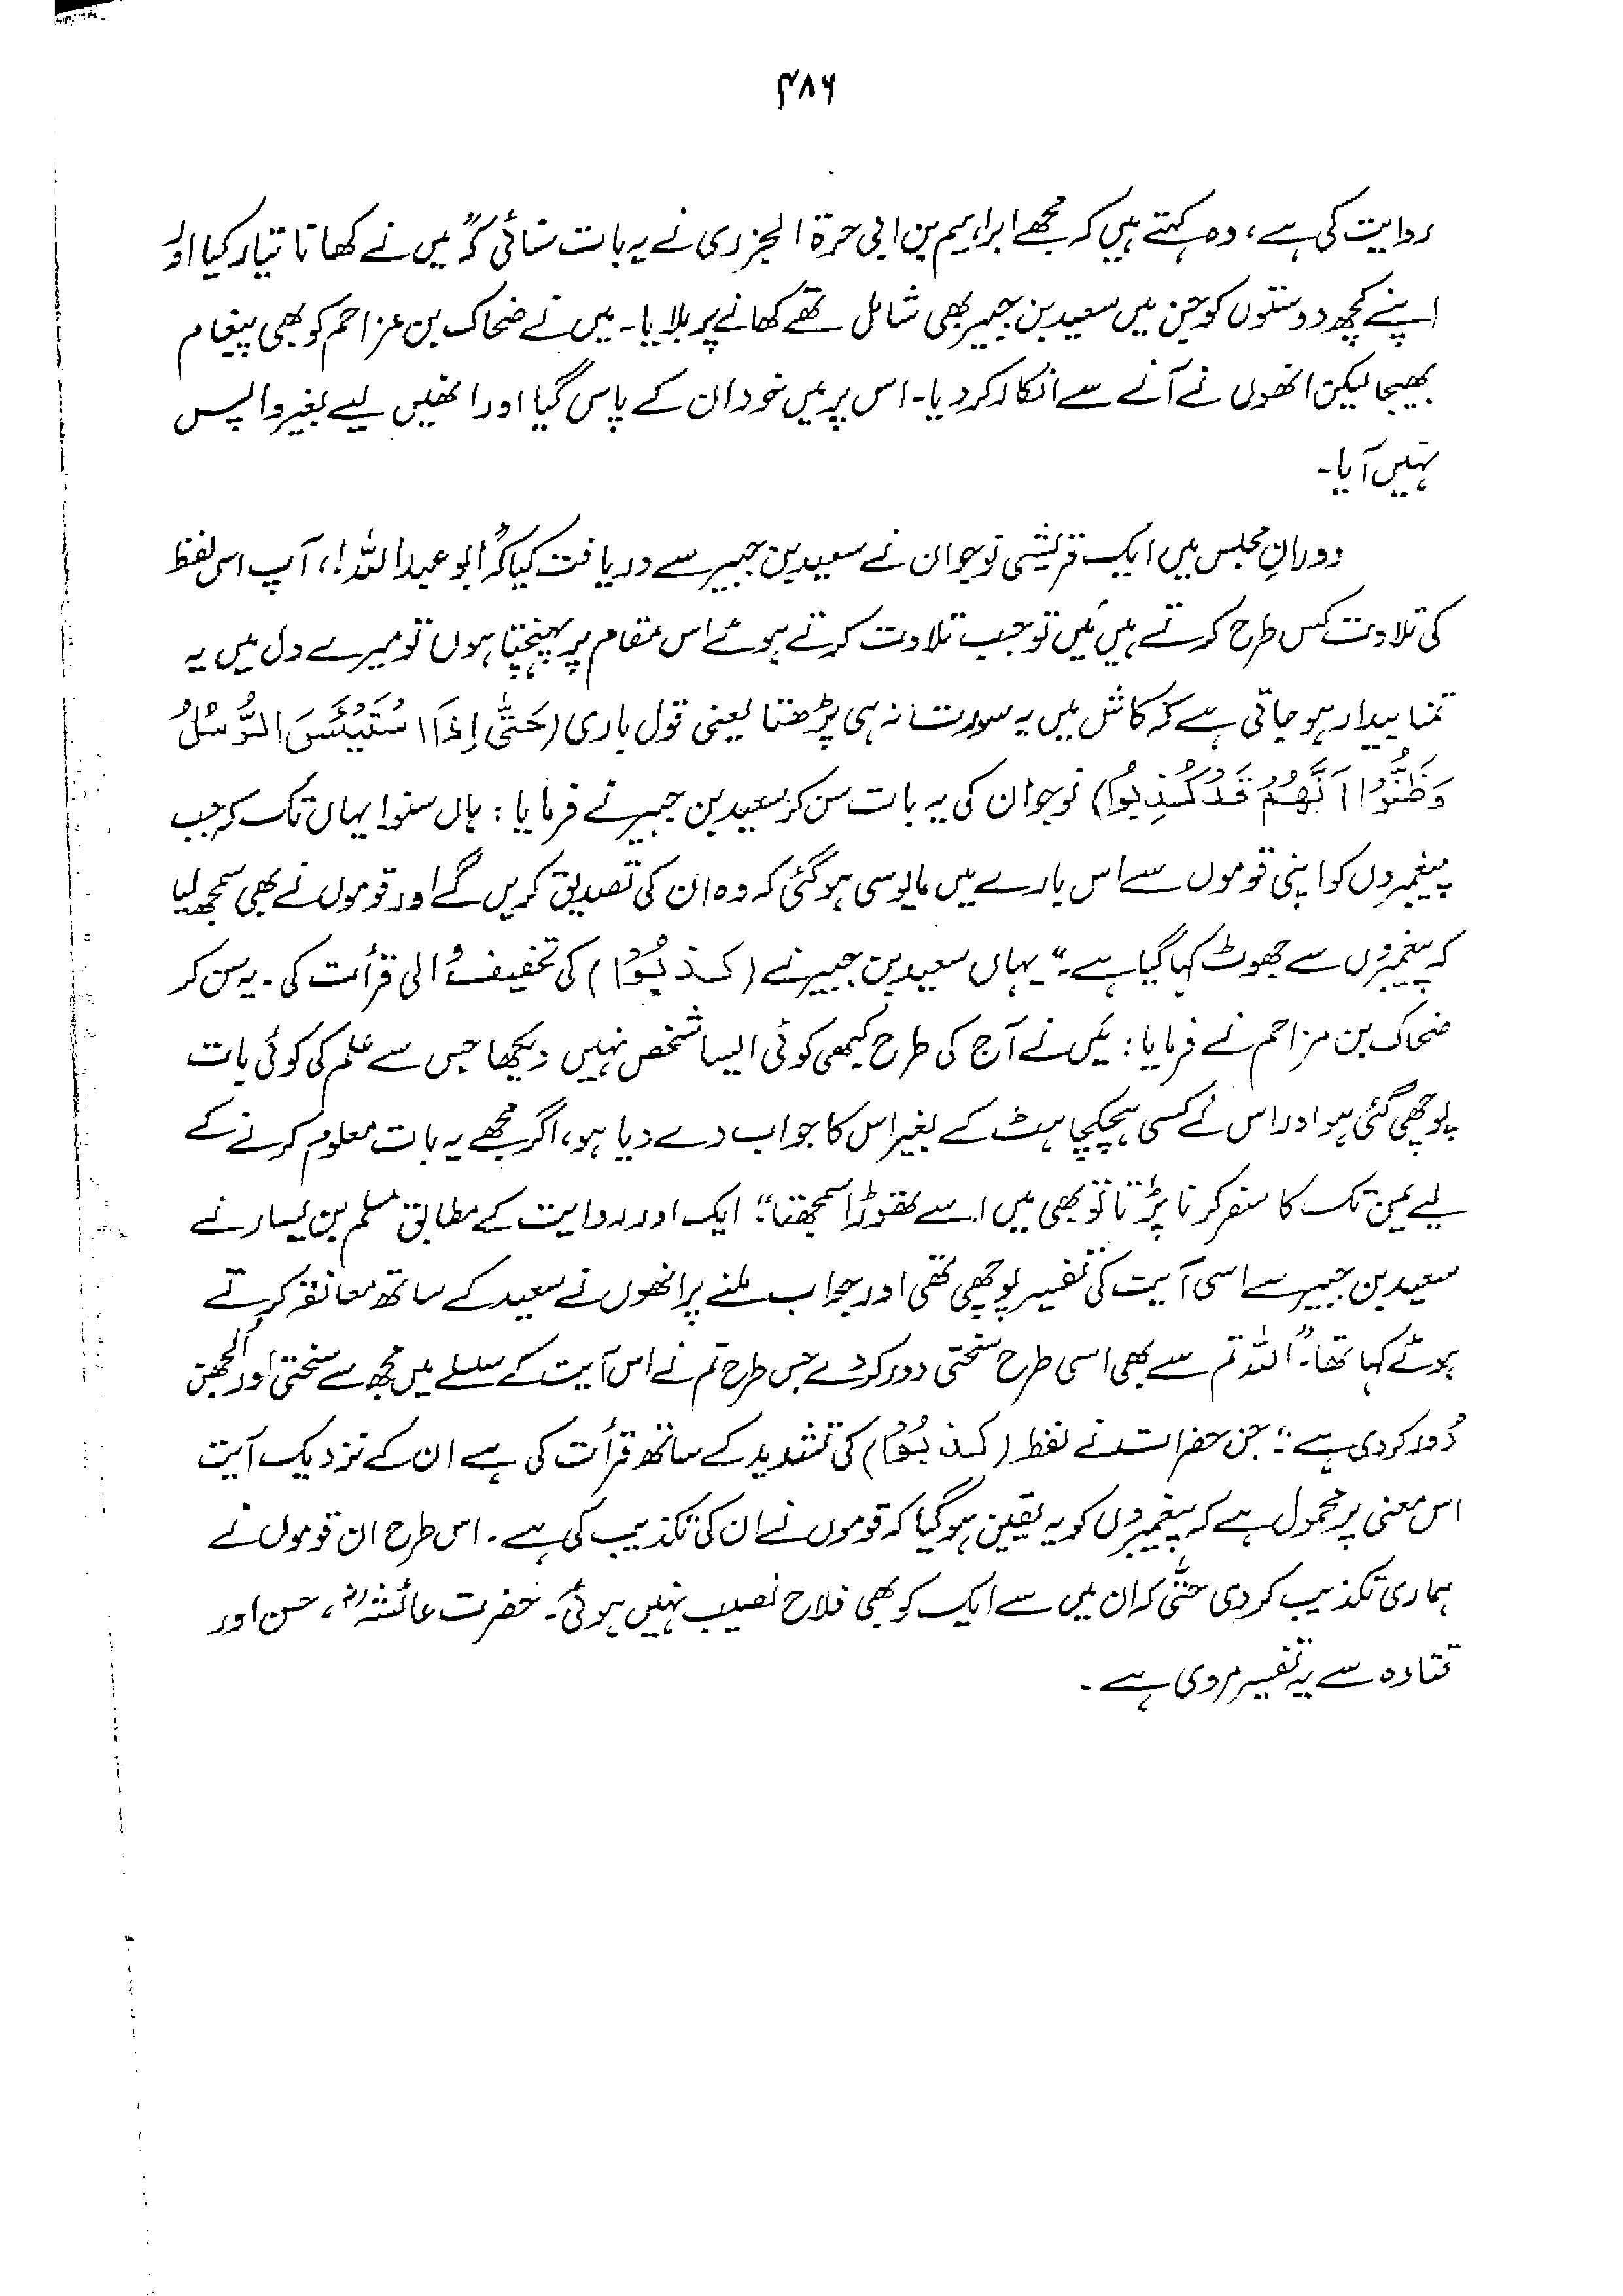 ۴۸۶
روایت کی ہے، وہ کہتے ہیں کہ مجھے ابراہیم بن ابی حرۃ الجزری نے یہ بات سنائی کہ "میں نے کھانا تیار کیا اور
اپنے کچھ دوستوں کو جن میں سعید بن جبیر بھی شامل تھے کھانے پر بلایا۔ میں نے ضحاک بن مزاحم کو بھی پیغام
بھیجا لیکن انھوں نے آنے سے انکار کر دیا۔ اس پر میں خود ان کے پاس گیا اور انھیں لیے بغیر واپس
نہیں آیا۔
دورانِ مجلس میں ایک قریشی نوجوان نے سعید بن جبیر سے دریافت کیا کہ "ابو عبداللہ!، آپ اس لفظ
کی تلاوت کس طرح کرتے ہیں میں تو جب تلاوت کرتے ہوئے اس مقام پر پہنچتا ہوں تو میرے دل میں یہ
تمنا بیدار ہو جاتی ہے کہ کاش میں یہ سورت نہ ہی پڑھتا یعنی قول باری (حَتّٰی اِذَا اسْتَیْئَسَ الرُّسُلُ
وَظَنُّوْا اَنَّھُمْ قَدْ کُذِبُوْا) نوجوان کی یہ بات سن کر سعید بن جبیر نے فرمایا: ہاں سنو! یہاں تک کہ جب
پیغمبروں کو اپنی قوموں سے اس بارے میں مایوسی ہو گئی کہ وہ ان کی تصدیق کریں گے اور قوموں نے بھی سمجھ لیا
کہ پیغمبروں سے جھوٹ کہا گیا ہے۔" یہاں سعید بن جبیر نے (کذبُوْا) کی تخفیف والی قرأت کی۔ یہ سن کر
ضحاک بن مزاحم نے فرمایا: میں نے آج کی طرح کبھی کوئی ایسا شخص نہیں دیکھا جس سے علم کی کوئی بات
پوچھی گئی ہو اور اس نے کسی ہچکچاہٹ کے بغیر اس کا جواب دے دیا ہو، اگر مجھے یہ بات معلوم کرنے کے
لیے یمن تک کا سفر کرنا پڑتا تو بھی میں اسے تھوڑا سمجھتا"۔ ایک اور روایت کے مطابق مسلم بن یسار نے
سعید بن جبیر سے اسی آیت کی تفسیر پوچھی تھی اور جواب ملنے پر انھوں نے سعید کے ساتھ معانقہ کرتے
ہوئے کہا تھا۔ "اللہ تم سے بھی اسی طرح سختی دور کر دے جس طرح تم نے اس آیت کے سلسلے میں مجھ سے سختی اور الجھن
دُور کر دی ہے"۔ جن حضرات نے لفظ (کذبُوْا) کی تشدید کے ساتھ قرأت کی ہے ان کے نزدیک آیت
اس معنی پر محمول ہے کہ پیغمبروں کو یہ یقین ہو گیا کہ قوموں نے ان کی تکذیب کی ہے۔ اس طرح ان قوموں نے
ہماری تکذیب کر دی حتّٰی کہ ان میں سے ایک کو بھی فلاح نصیب نہیں ہوئی۔ حضرت عائشہؓ، حسن اور
قتادہ سے یہ تفسیر مروی ہے۔